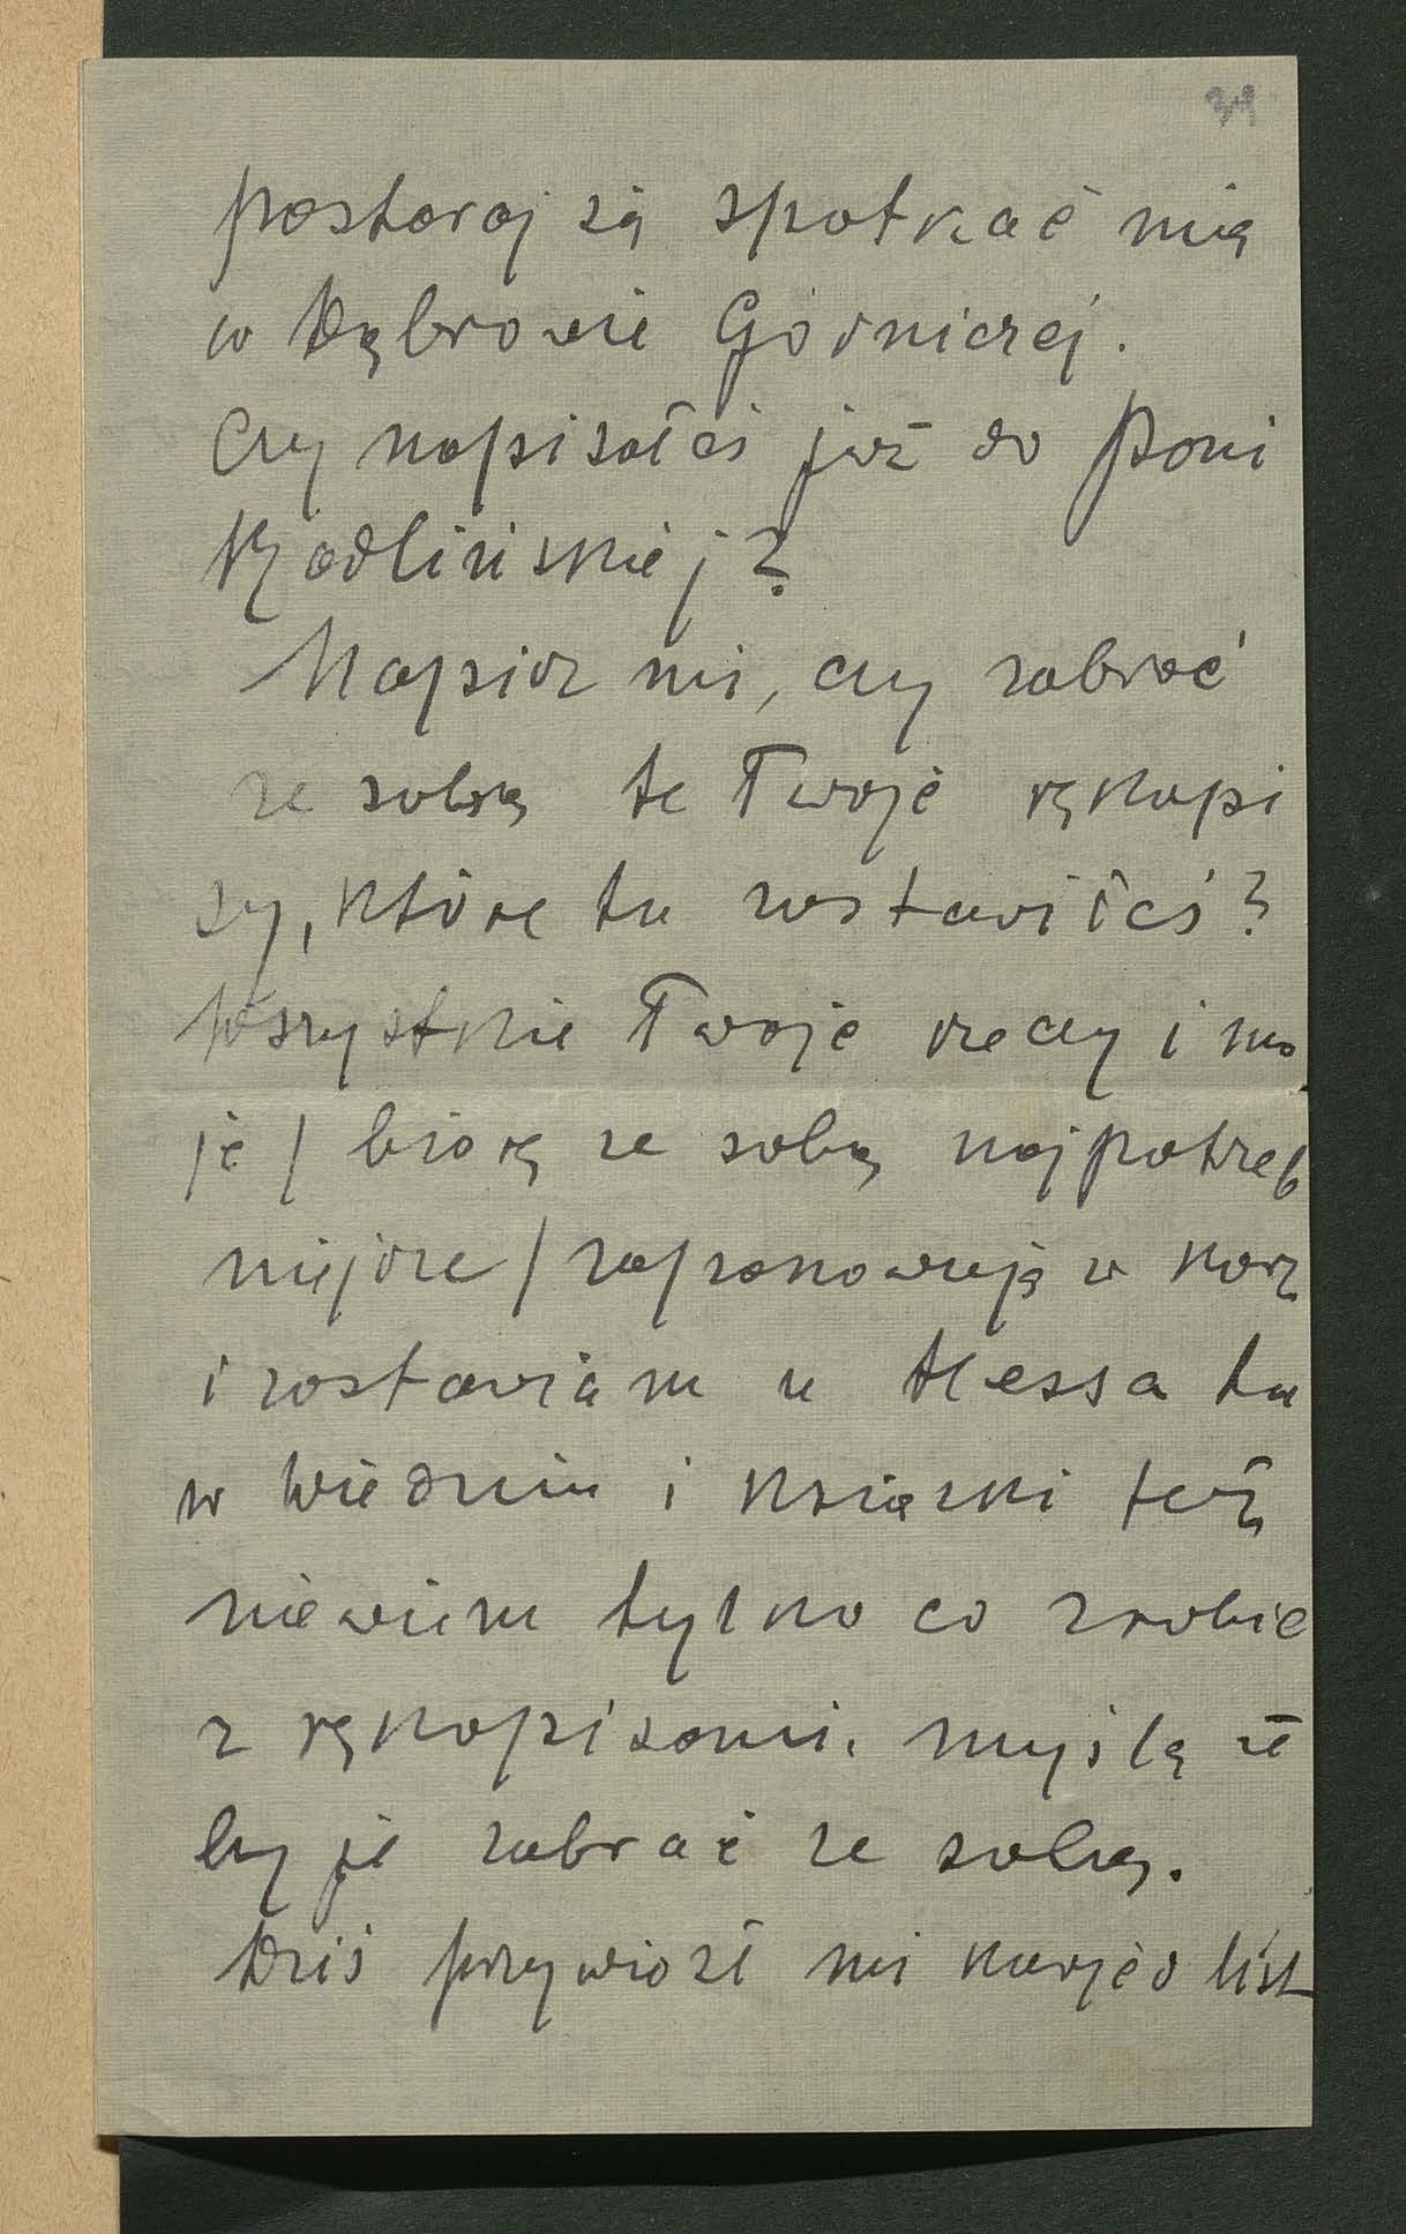 31
postaraj się spotkać mię
w Dąbrowie Górniczej.
Czy napisałeś już do Pani
Radlińskiej?
Napisz mi, czy zabrać
ze sobą te Twoje rękopi
sy, które tu zostawiłeś?
Wszystkie Twoje rzeczy i mo
je / biorę ze sobą najpotrzeb
niejsze / zapakowuję w kosz
i zostawiam u Hessa tu
w Wiedniu i książki też
niewiem tylko co zrobić
z rękopisami. myślę że
by je zabrać ze sobą.
Dziś przywiózł mi kurjer list